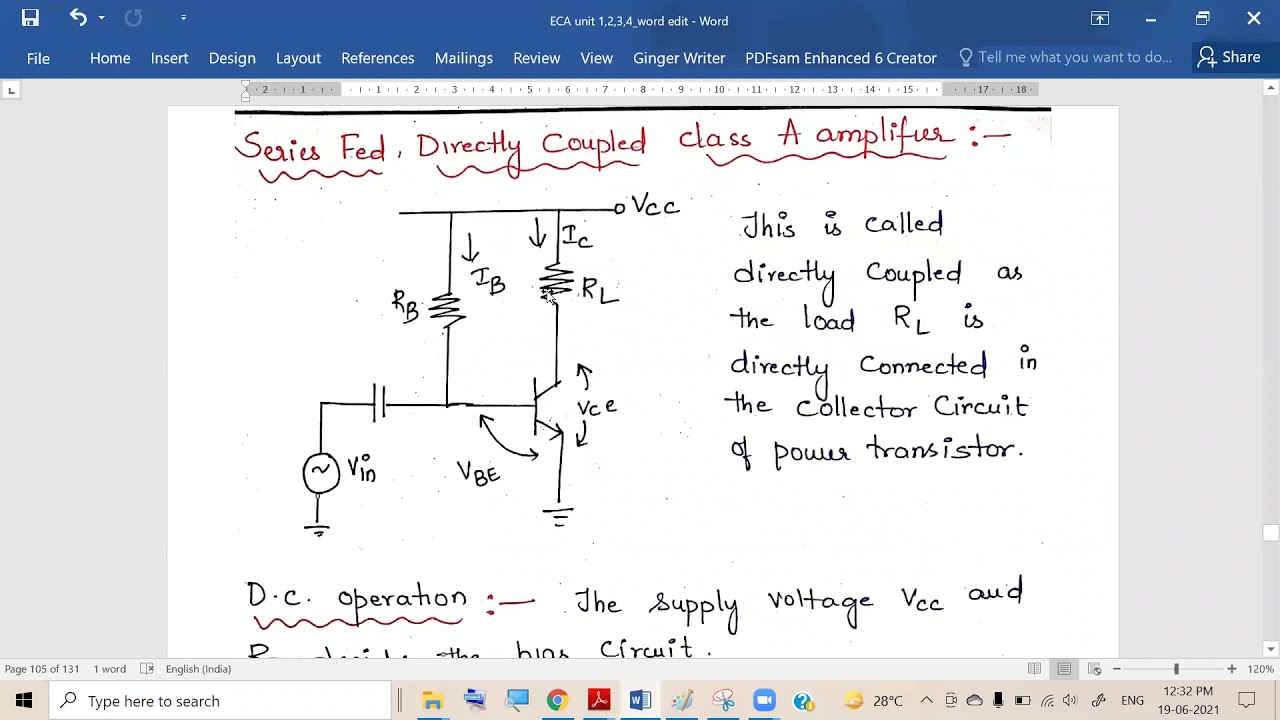 ECA unit 1,2,3,4_word edit - Word
File Home Insert Design Layout References Mailings Review View Ginger Writer PDFsam Enhanced 6 Creator Tell me what you want to do... Share
2 1 1 2 3 4 5 6 7 8 9 10 11 12 13 14 15 17 18
Series Fed, Directly Coupled class A amplifier :-
Vcc
IC
IB
RL
RB
Vce
VBE
Vin
This is called
directly Coupled as
the load RL is
directly Connected in
the Collector Circuit
of power transistor.
D.C. operation :- The supply voltage Vcc and
the bias Circuit.
Page 105 of 131 1 word English (India) 120%
Type here to search
28°C ENG 12:32 PM
19-06-2021